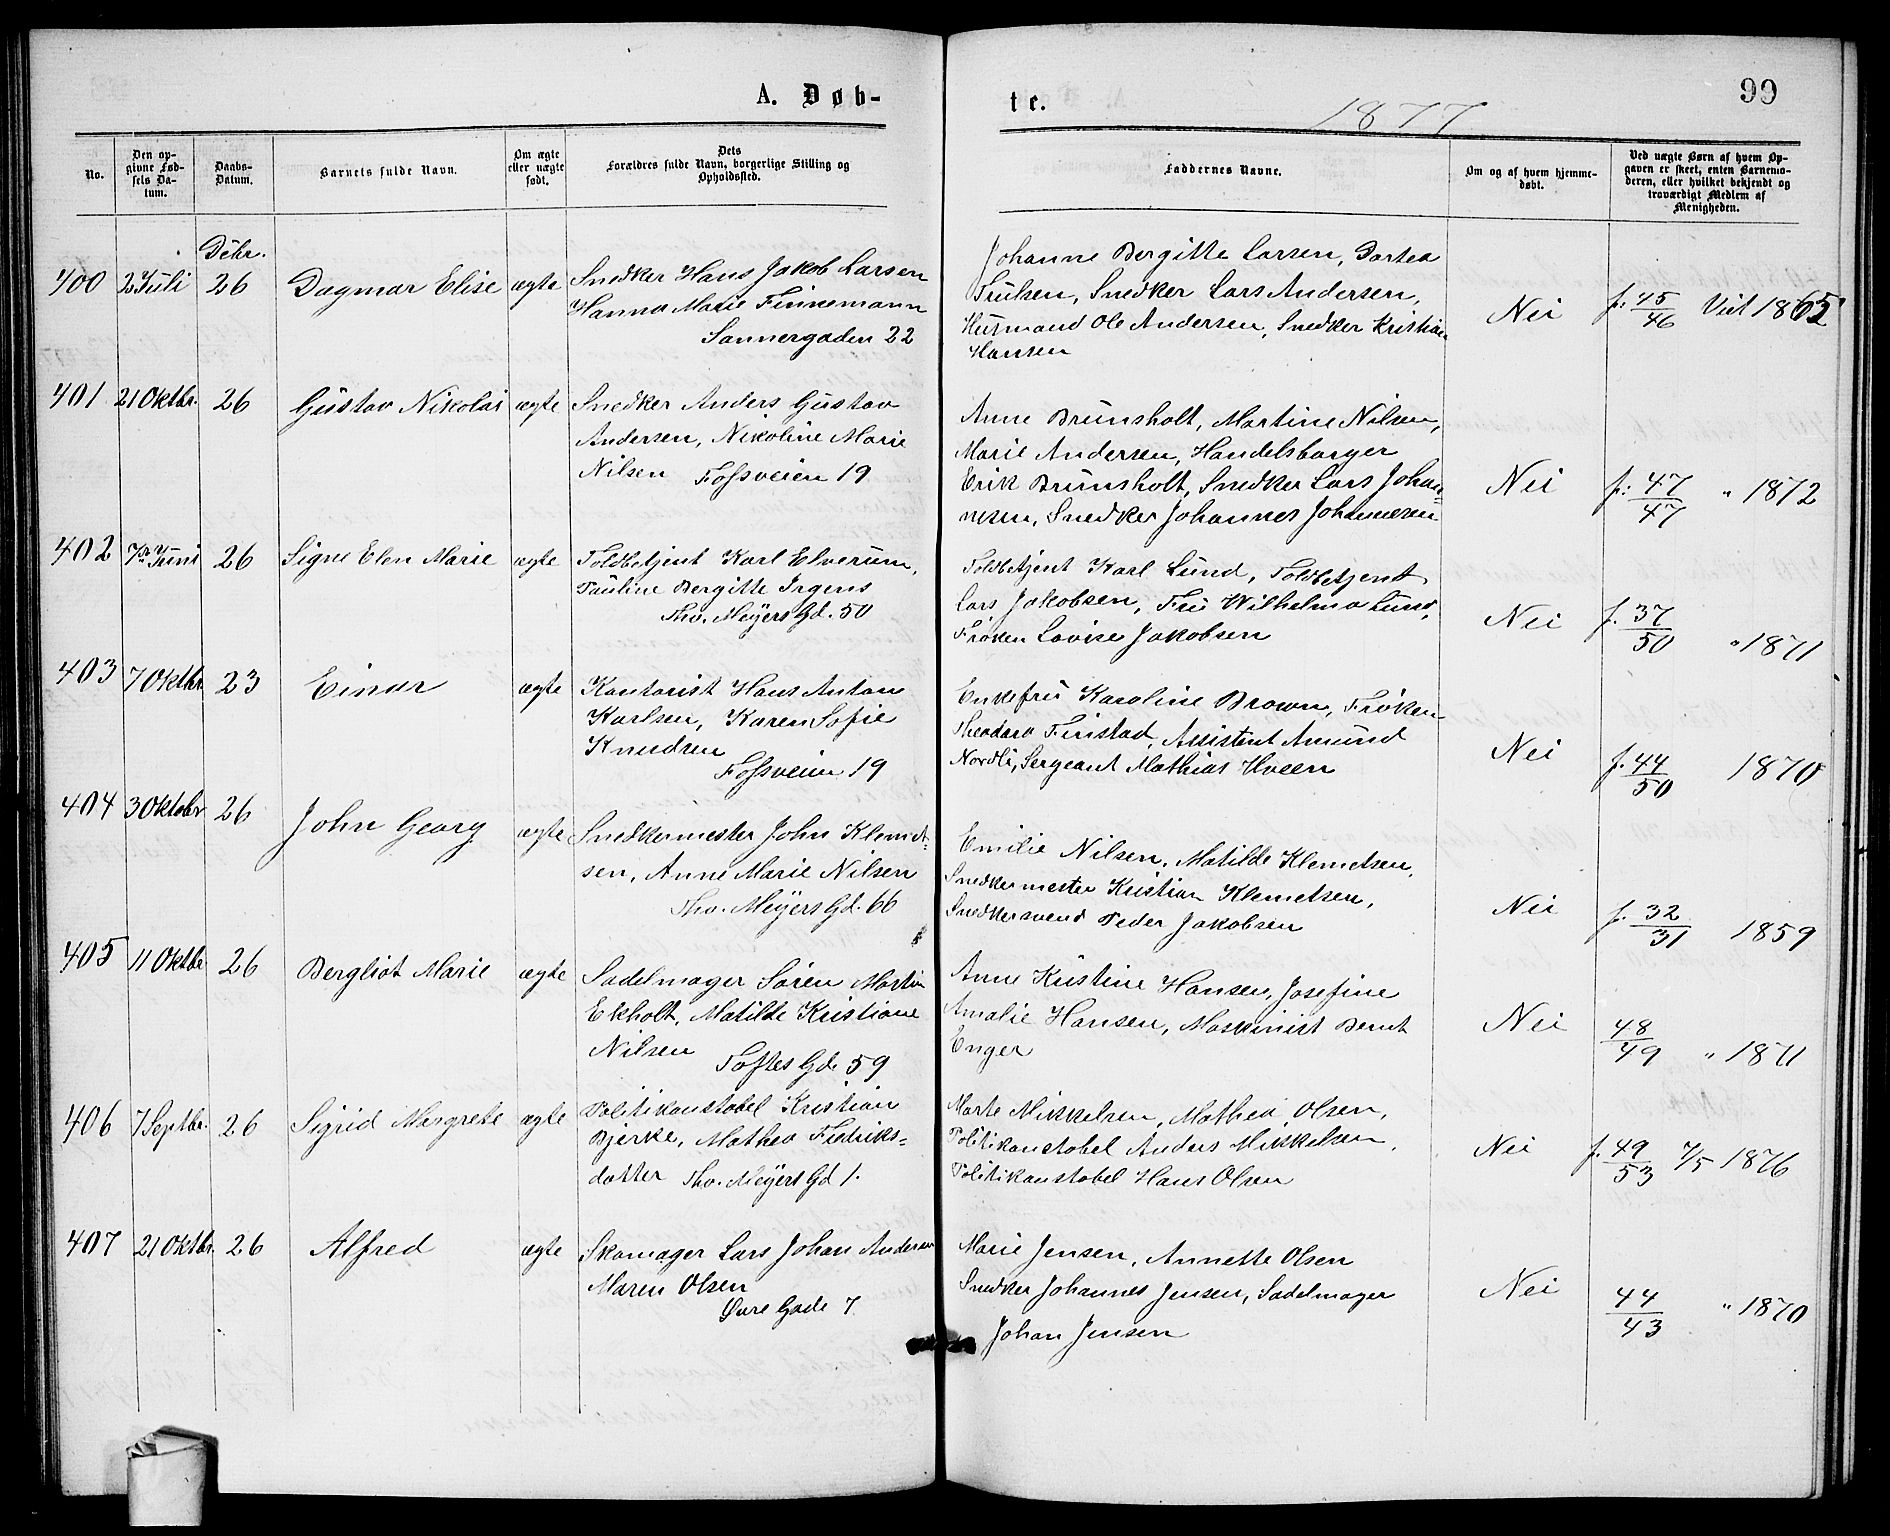 A. Døb-
te.
1877
99
No.
Den op-
givne Fød-
sels Da-
tum.
Daabs-
Datum.
Barnets fulde Navn.
Om ægte
eller uægte
født.
Dets
Forældres fulde Navn, borgerlige Stilling og
Opholdssted.
Faddernes Navne.
Om og af hvem hjemme-
døbt.
Ved uægte Børn af hvem Op-
gaven er skeet, enten Barnemo-
deren, eller hvilket bekjendt og
troværdigt Medlem af
Menigheden.
Debr.
400 2 Juli 26 Dagmar Elise ægte
Snedker Hans Jakob Larsen
Hanna Marie Finnemann
Sannergaden 22
Johanne Bergitte Larsen, Dortea
Trulsen, Snedker Lars Andersen,
Husmand Ole Andersen, Snedker Kristian
Hansen
Nei
f: 45/46 Viet 1865
401 21 Oktbr. 26 Gustav Nikolai ægte
Snedker Anders Gustav
Andersen, Nikoline Marie
Nilsen Fossveien 19
Anne Brunsholt, Martine Nilsen,
Marie Andersen, Handelsborger
Erik Brunsholt, Snedker Lars Johan-
nesen, Snedker Johannes Johannesen
Nei
f: 47/47 " 1872
402 7 Juni 26 Signe Elen Marie ægte
Toldbetjent Karl Elverum,
Pauline Bergitte Irgens
Thv. Meyers Gd. 50
Toldbetjent Karl Lund, Toldbetjent
Lars Jakobsen, Fru Wilhelma Lund,
Frøken Lovise Jakobsen
Nei
f. 37/50 " 1871
403 7 Oktbr. 23 Einar ægte
Kontorist Hans Anton
Karlsen, Karen Sofie
Knudsen
Fossveien 19
Enkefru Karoline Brown, Frøken
Theodara Finstad, Assistent Amund
Nordli, Sergeant Mathias Hveen
Nei
f. 44/50 1870
404 3 Oktobr 26 John Georg ægte
Snedkermester John Klemet-
sen, Anne Marie Nilsen
Thv. Meyers Gd. 66
Emilie Nilsen, Matilde Klemetsen,
Snedkermester Kristian Klemetsen,
Snedkersvend Peder Jakobsen
Nei
f. 32/31 1859
405 11 Oktbr 26 Bergliot Marie ægte
Sadelmager Søren Martin
Ekholt, Matilde Kristiane
Nilsen
Toftes Gd. 59
Anne Kristine Hansen, Josefine
Amalie Hansen, Maskinist Bernt
Enger
Nei
48/49 " 1871
406 7 Septbr. 26 Sigrid Margrete ægte
Politikonstabel Kristian
Bjerke, Mathea Fredriks-
datter Thv. Meyers Gd 1.
Marte Mikkelsen, Mathea Olsen,
Politikonstabel Anders Mikkelsen,
Politikonstabel Hans Olsen
Nei
f. 49/53 7/5 1876
407 21 Oktbr. 26 Alfred ægte
Skomager Lars Johan Andersen
Maren Olsen
Øvre Gade 7
Marie Jensen, Annette Olsen
Snedker Johannes Jensen, Sadelmager
Johan Jensen
Nei
44/43 " 1870